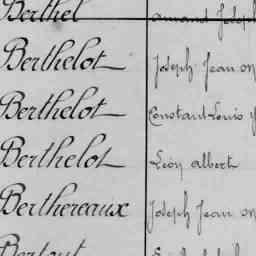 Berthel amand Joseph
Berthelot Joseph Jean
Berthelot Constant Louis
Berthelot Léon Albert
Berthereaux Joseph Jean